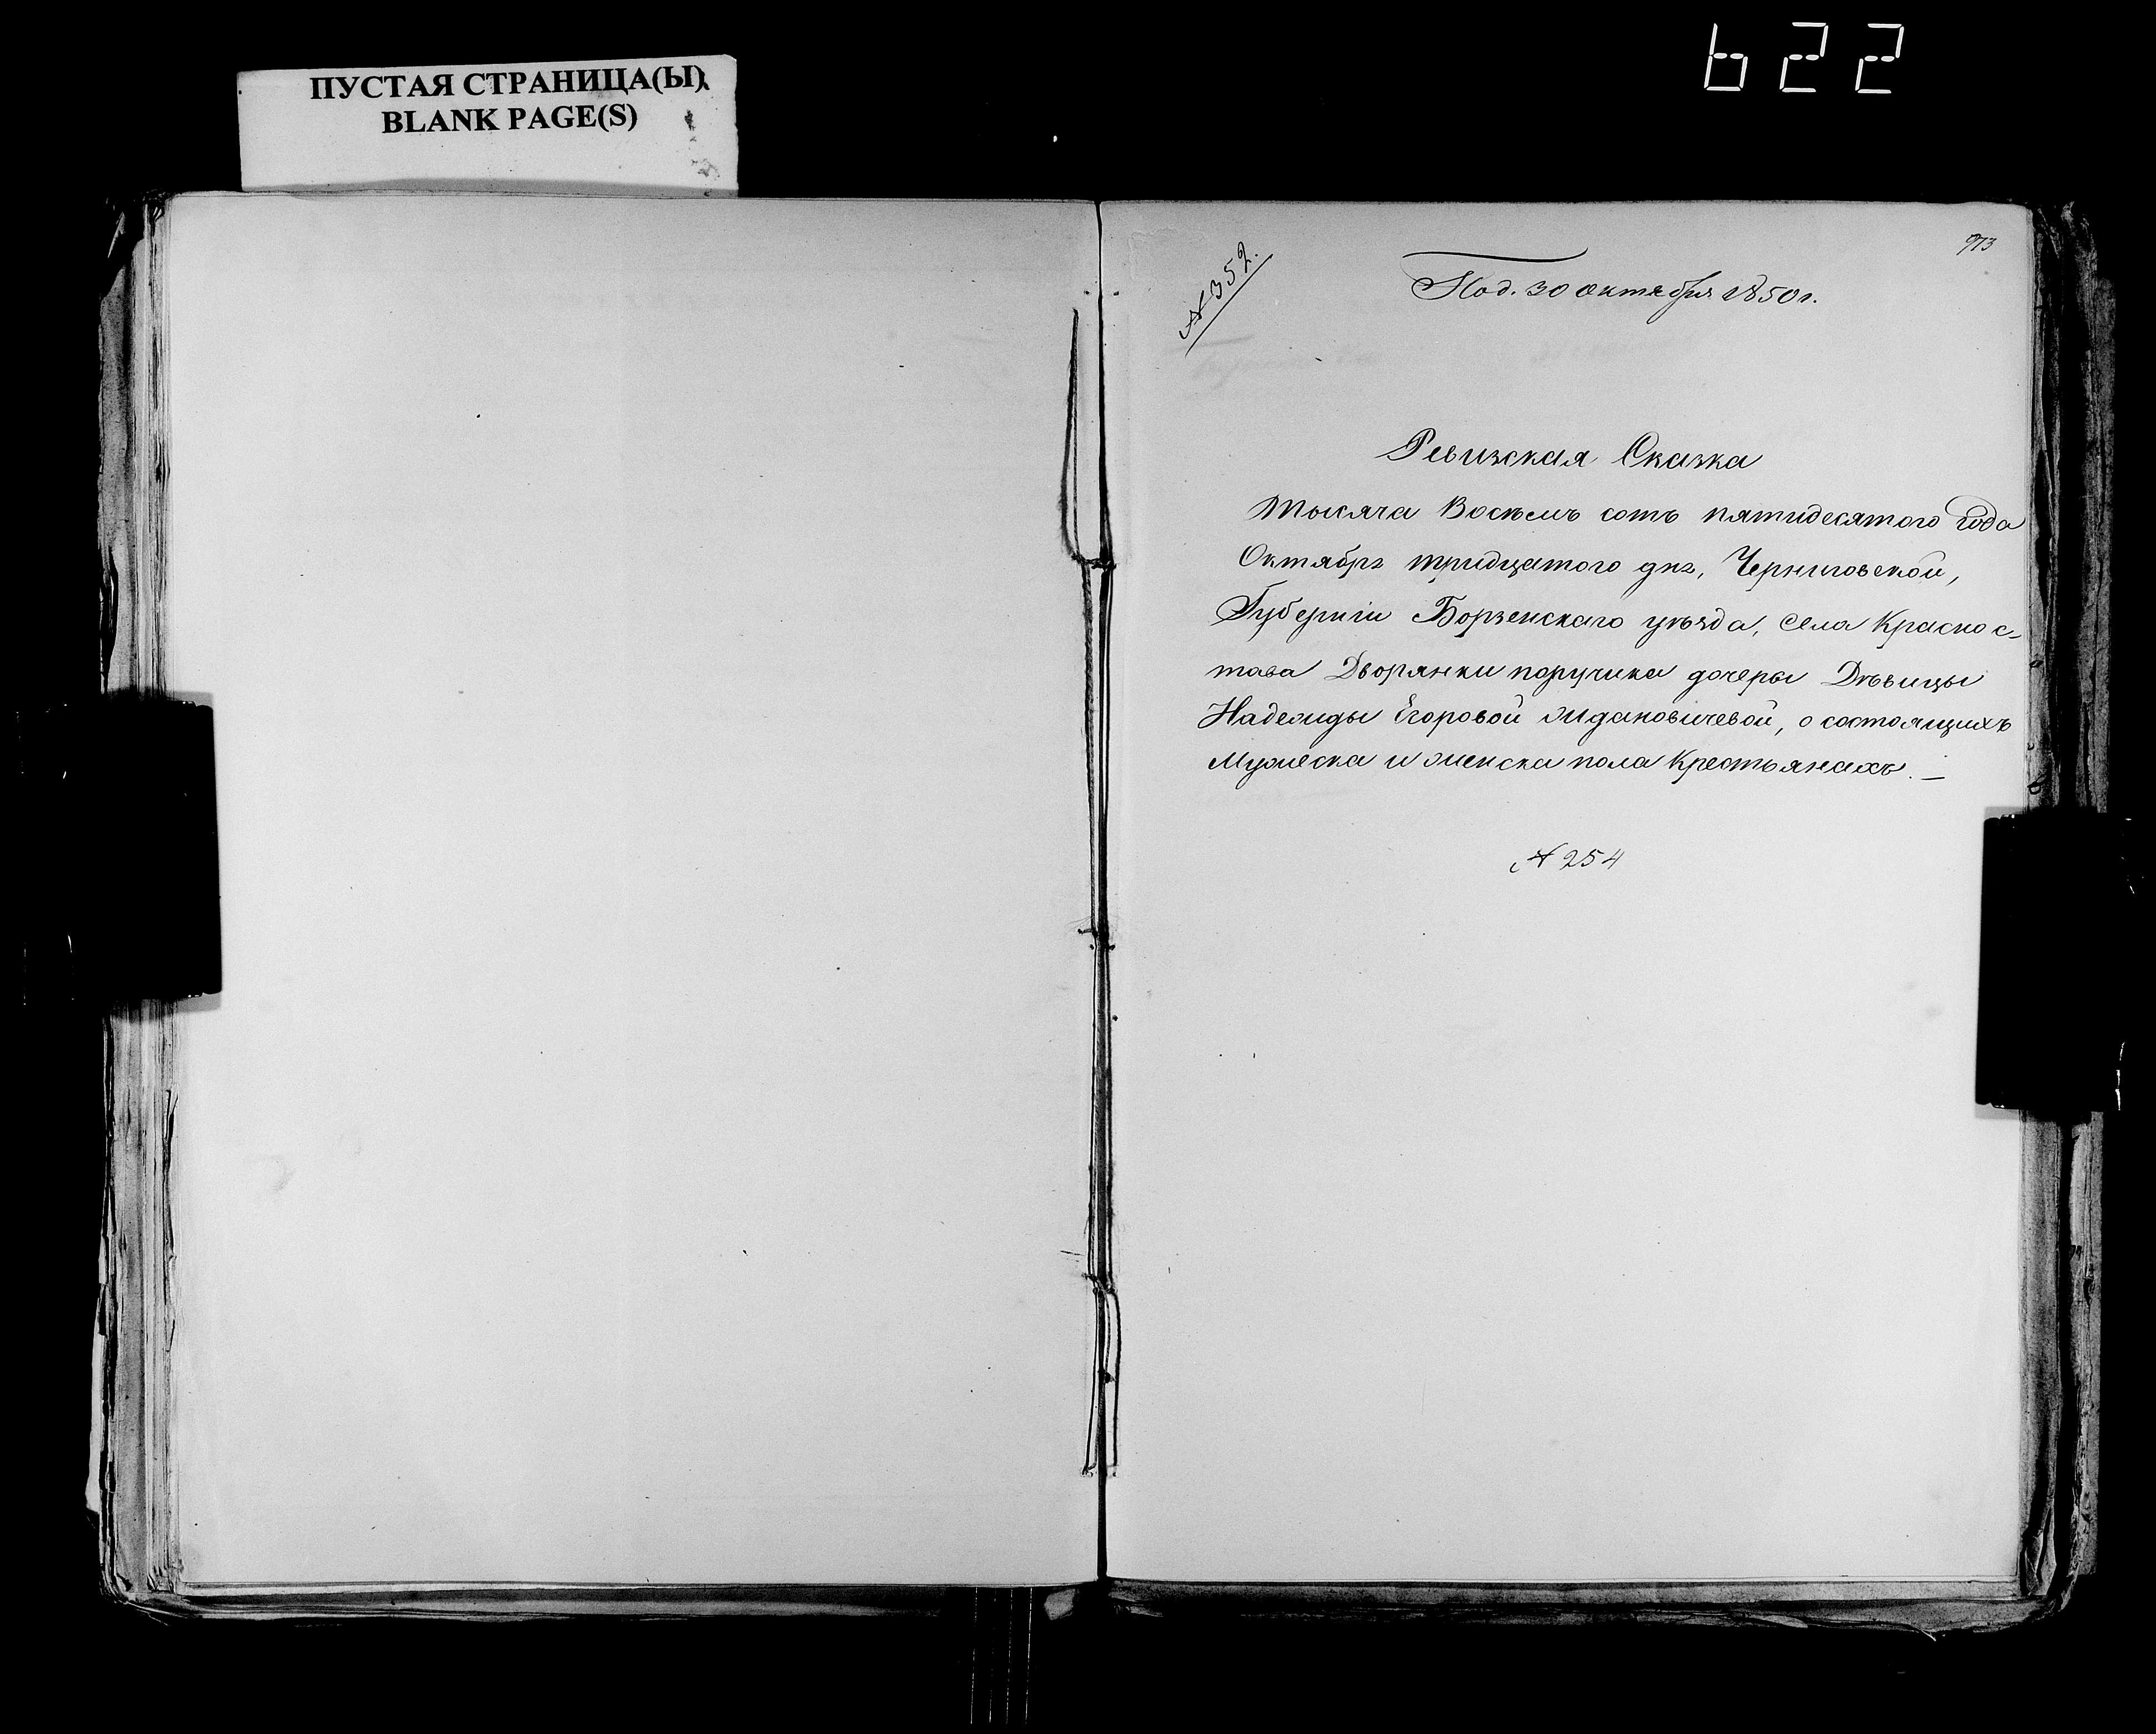 622
ПУСТАЯ СТРАНИЦА(Ы)
BLANK PAGE(S)
973
№ 352.
Под. 30 октября 1850 г.
Ревизская Сказка
Тысяча Восемь сотъ пятидесятого года
Октября тридцатого дня, Черниговской,
Губерніи Борзенскаго уѣзда, села Краснос-
тава Дворянки поручика дочеры Дѣвицы
Надежды Егоровой Ждановичевой, о состоящихъ
Мужеска и женска пола Крестьянахъ. —
№ 254